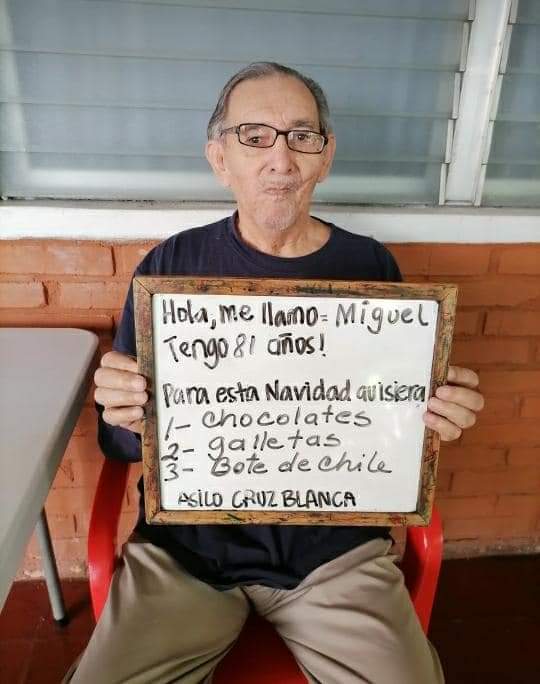 Hola, me llamo= Miguel
Tengo 81 años!
Para esta Navidad quisiera
1- chocolates
2- galletas
3- Bote de chile
ASILO CRUZ BLANCA